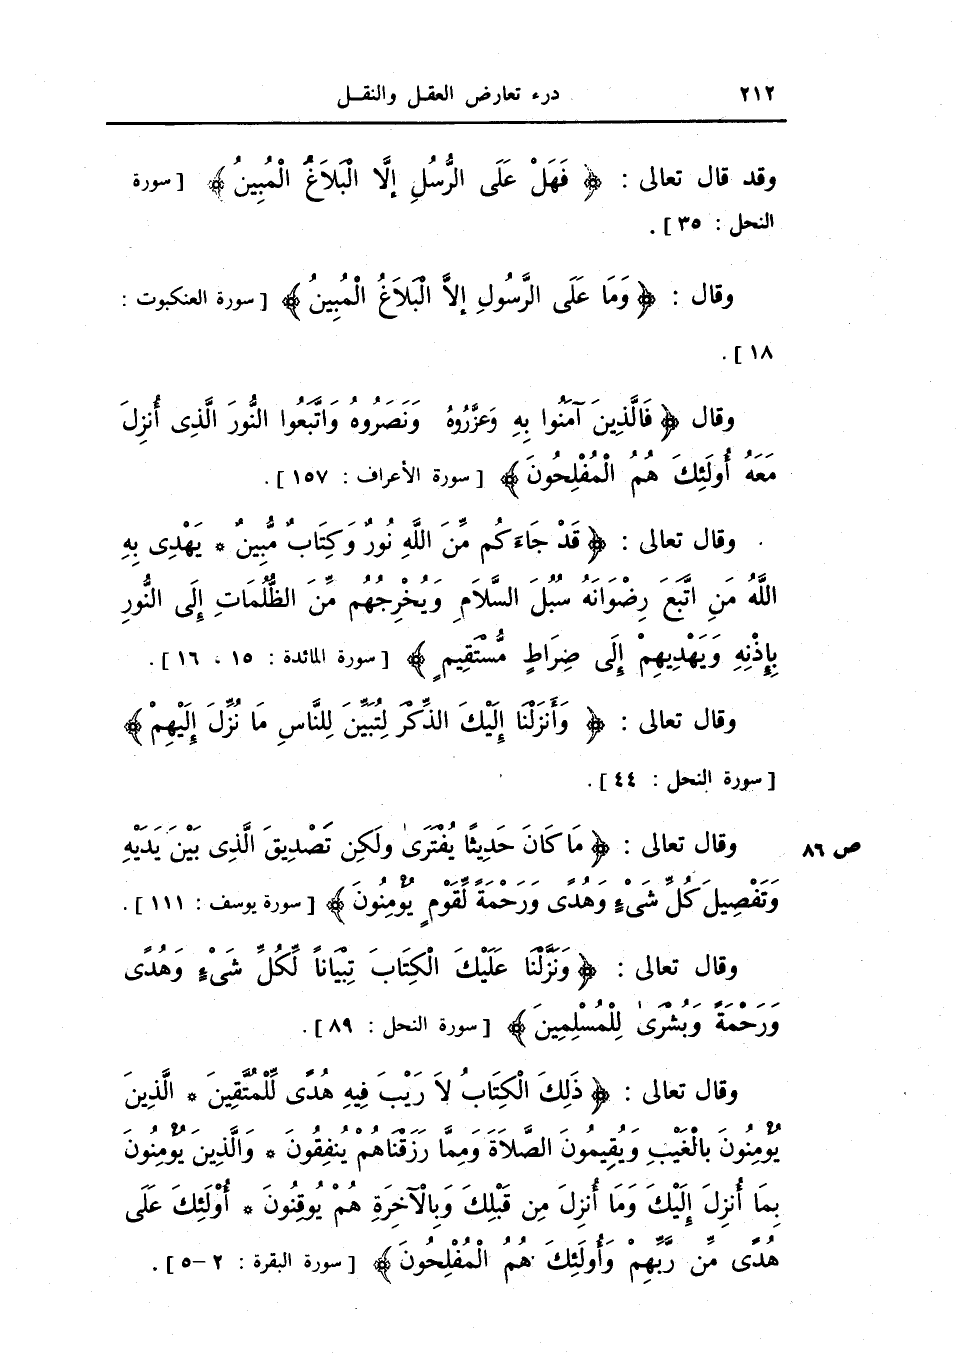 ٢١٢ درء تعارض العقل والنقل
وقد قال تعالى : ﴿ فَهَلْ عَلَى الرُّسُلِ إلَّا الْبَلَاغُ الْمُبِينُ ﴾ [ سورة
النحل : ٣٥ ] .
وقال : ﴿ وَمَا عَلَى الرَّسُولِ إلاَّ الْبَلَاغُ الْمُبِينُ ﴾ [ سورة العنكبوت :
١٨ ] .
وقال ﴿ فَالَّذِينَ آمَنُوا بِهِ وَعَزَّرُوهُ وَنَصَرُوهُ وَاتَّبَعُوا النُّورَ الَّذِى أُنزِلَ
مَعَهُ أُولَئِكَ هُمُ الْمُفْلِحُونَ ﴾ [ سورة الأعراف : ١٥٧ ] .
وقال تعالى : ﴿ قَدْ جَاءَكُم مِّنَ اللَّهِ نُورٌ وَكِتَابٌ مُّبِينٌ * يَهْدِى بِهِ
اللَّهُ مَنِ اتَّبَعَ رِضْوَانَهُ سُبُلَ السَّلَامِ وَيُخْرِجُهُم مِّنَ الظُّلُمَاتِ إِلَى النُّورِ
بِإِذْنِهِ وَيَهْدِيهِمْ إِلَى صِرَاطٍ مُّسْتَقِيمٍ ﴾ [ سورة المائدة : ١٥ ، ١٦ ] .
وقال تعالى : ﴿ وَأَنزَلْنَا إِلَيْكَ الذِّكْرَ لِتُبَيِّنَ لِلنَّاسِ مَا نُزِّلَ إِلَيْهِمْ ﴾
[ سورة النحل : ٤٤ ] .
وقال تعالى : ﴿ مَا كَانَ حَدِيثًا يُفْتَرَىٰ ولَكِن تَصْدِيقَ الَّذِى بَيْنَ يَدَيْهِ ص ٨٦
وَتَفْصِيلَ كُلِّ شَىْءٍ وَهُدًى وَرَحْمَةً لِّقَوْمٍ يُؤْمِنُونَ ﴾ [ سورة يوسف : ١١١ ] .
وقال تعالى : ﴿ وَنَزَّلْنَا عَلَيْكَ الْكِتَابَ تِبْيَاناً لِّكُلِّ شَىْءٍ وَهُدًى
وَرَحْمَةً وَبُشْرَىٰ لِلْمُسْلِمِينَ ﴾ [ سورة النحل : ٨٩ ] .
وقال تعالى : ﴿ ذَلِكَ الْكِتَابُ لاَ رَيْبَ فِيهِ هُدًى لِّلْمُتَّقِينَ * الَّذِينَ
يُؤْمِنُونَ بالْغَيْبِ وَيُقِيمُونَ الصَّلَاةَ وَمِمَّا رَزَقْنَاهُمْ يُنفِقُونَ * وَالَّذِينَ يُؤْمِنُونَ
بِمَا أُنزِلَ إِلَيْكَ وَمَا أُنزِلَ مِن قَبْلِكَ وَبِالْآخِرَةِ هُمْ يُوقِنُونَ * أُوْلَئِكَ عَلَى
هُدًى مِّن رَّبِّهِمْ وَأُولَئِكَ هُمُ الْمُفْلِحُونَ ﴾ [ سورة البقرة : ٢ -٥ ] .